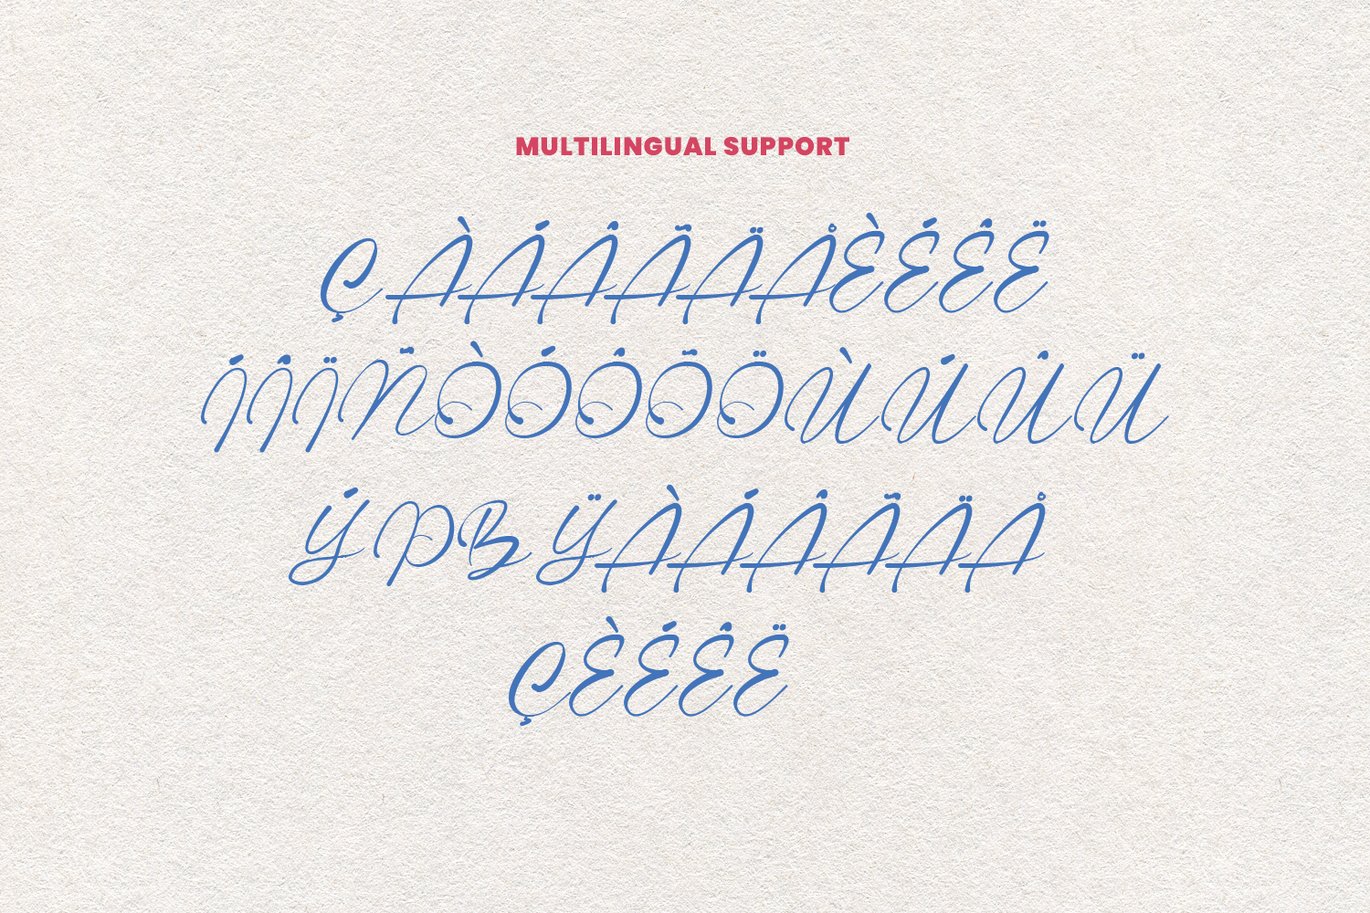 MULTILINGUAL SUPPORT
ÇÀÁÂÃÄÅÈÉÊË
ÍÎÏÑÒÓÔÕÖÙÚÛÜ
ÝÞß ŸÀÁÂÃÄÅ
ÇÈÉÊË